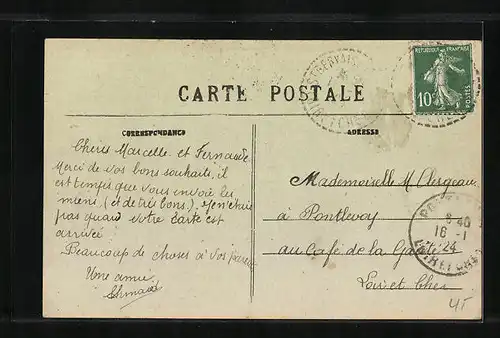 REPUBLIQUE FRANÇAISE
10c
POSTES
ST GERVAIS
CARTE POSTALE
CORRESPONDANCE
ADRESSE
Chères Marcelle et Fernande
Merci de vos bons souhaits, il
est temps que vous envoie les
miens (et de très bons).
pas quand votre carte est
arrivée
Beaucoup de choses à vos parents
Une amie
Mademoiselle M Clergeau
à Pontlevoy
au Café de la Gare
Loir et Cher
8 40
16 - 1
24
LOIR ET CHER
45